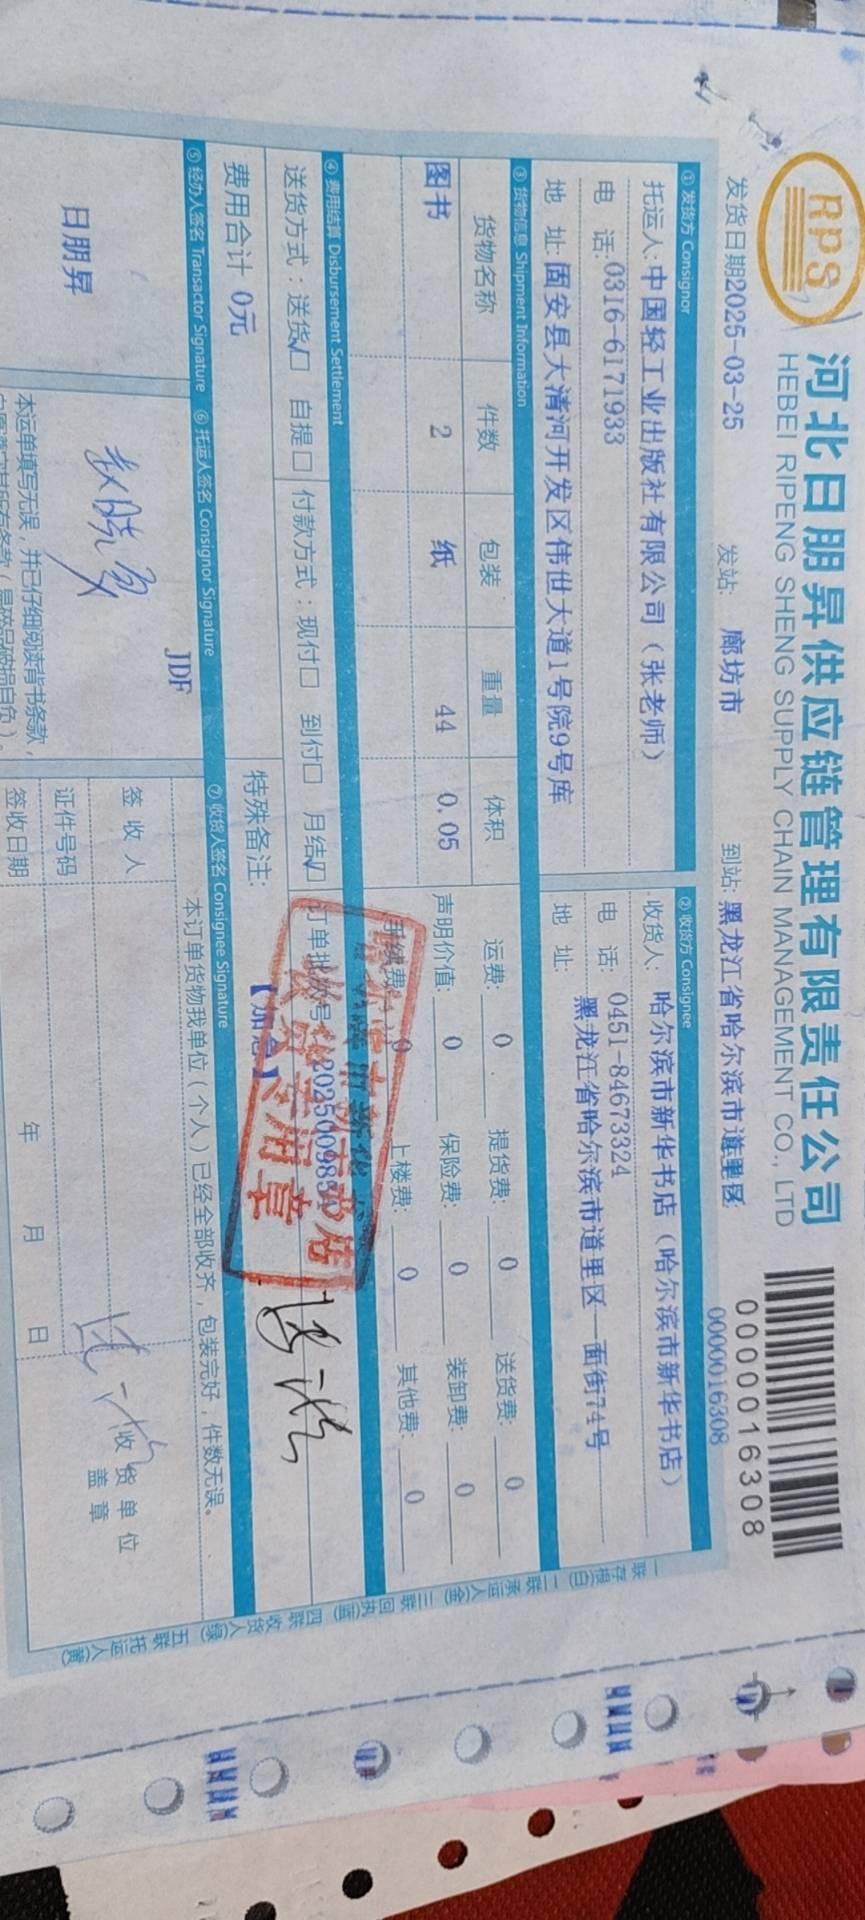 RPS
河北日朋昇供应链管理有限责任公司
HEBEI RIPENG SHENG SUPPLY CHAIN MANAGEMENT CO., LTD
0000016308
0000016308
发货日期2025-03-25 发站: 廊坊市 到站: 黑龙江省哈尔滨市道里区
① 发货方 Consignor
托运人:中国轻工业出版社有限公司（张老师）
电 话:0316-6171933
地 址:固安县大清河开发区伟世大道1号院9号库
② 收货方 Consignee
收货人: 哈尔滨市新华书店（哈尔滨市新华书店）
电 话: 0451-84673324
地 址: 黑龙江省哈尔滨市道里区一面街74号
③ 货物信息 Shipment Information
货物名称 件数 包装 重量 体积
图书 2 纸 44 0.05
运费: 0 提货费: 0 送货费: 0
声明价值: 0 保险费: 0 装卸费: 0
手续费: 0 上楼费: 0 其他费: 0
④ 费用结算 Disbursement Settlement
送货方式：送货☑ 自提☐ 付款方式：现付☐ 到付☐ 月结☑
费用合计 0元
特殊备注:
【加急】
收货专用章
⑤ 经办人签名 Transactor Signature ⑥ 托运人签名 Consignor Signature ⑦ 收货人签名 Consignee Signature
日朋昇
JDF
本运单填写无误，并已仔细阅读背书条款，
本订单货物我单位（个人）已经全部收齐，包装完好，件数无误。
签 收 人
证件号码
签收日期 年 月 日
收货单位
盖 章
一联 存根(白) 二联 承运人(金) 三联 回执(蓝) 四联 收货人(绿) 五联 托运人(黄)